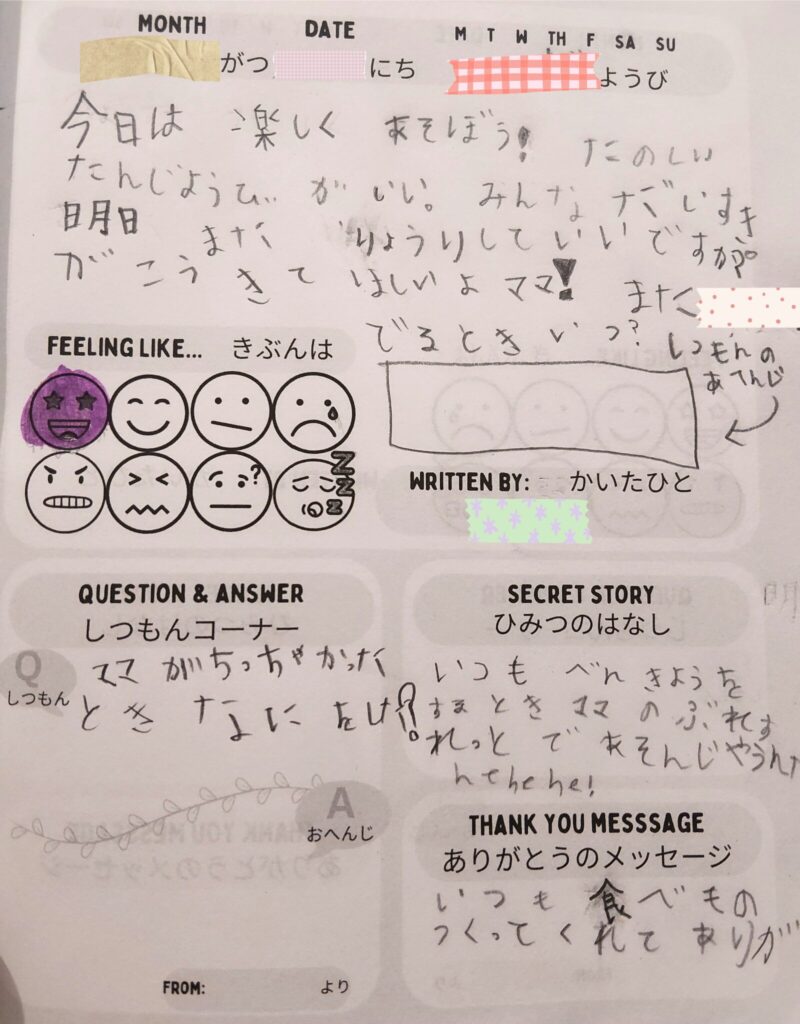 MONTH DATE M T W TH F SA SU
がつ にち ようび
今日は 楽しく あそぼう! たのしい
たんじようび が いい。 みんな だいすき
明日 また りょうりして いいですか?
がこう きて ほしいよ ママ! また
でるとき いつ?
いつもんの
あへんじ
FEELING LIKE... きぶんは
WRITTEN BY: かいたひと
QUESTION & ANSWER
しつもんコーナー
Q
しつもん
ママ がちっちゃかった
とき なに を
A
おへんじ
FROM: より
SECRET STORY
ひみつのはなし
いつも べんきようを
するとき ママ の ぶれす
れっと で あそんじやうん
hehehe!
THANK YOU MESSSAGE
ありがとうのメッセージ
いつも 食べもの
つくってくれて ありが